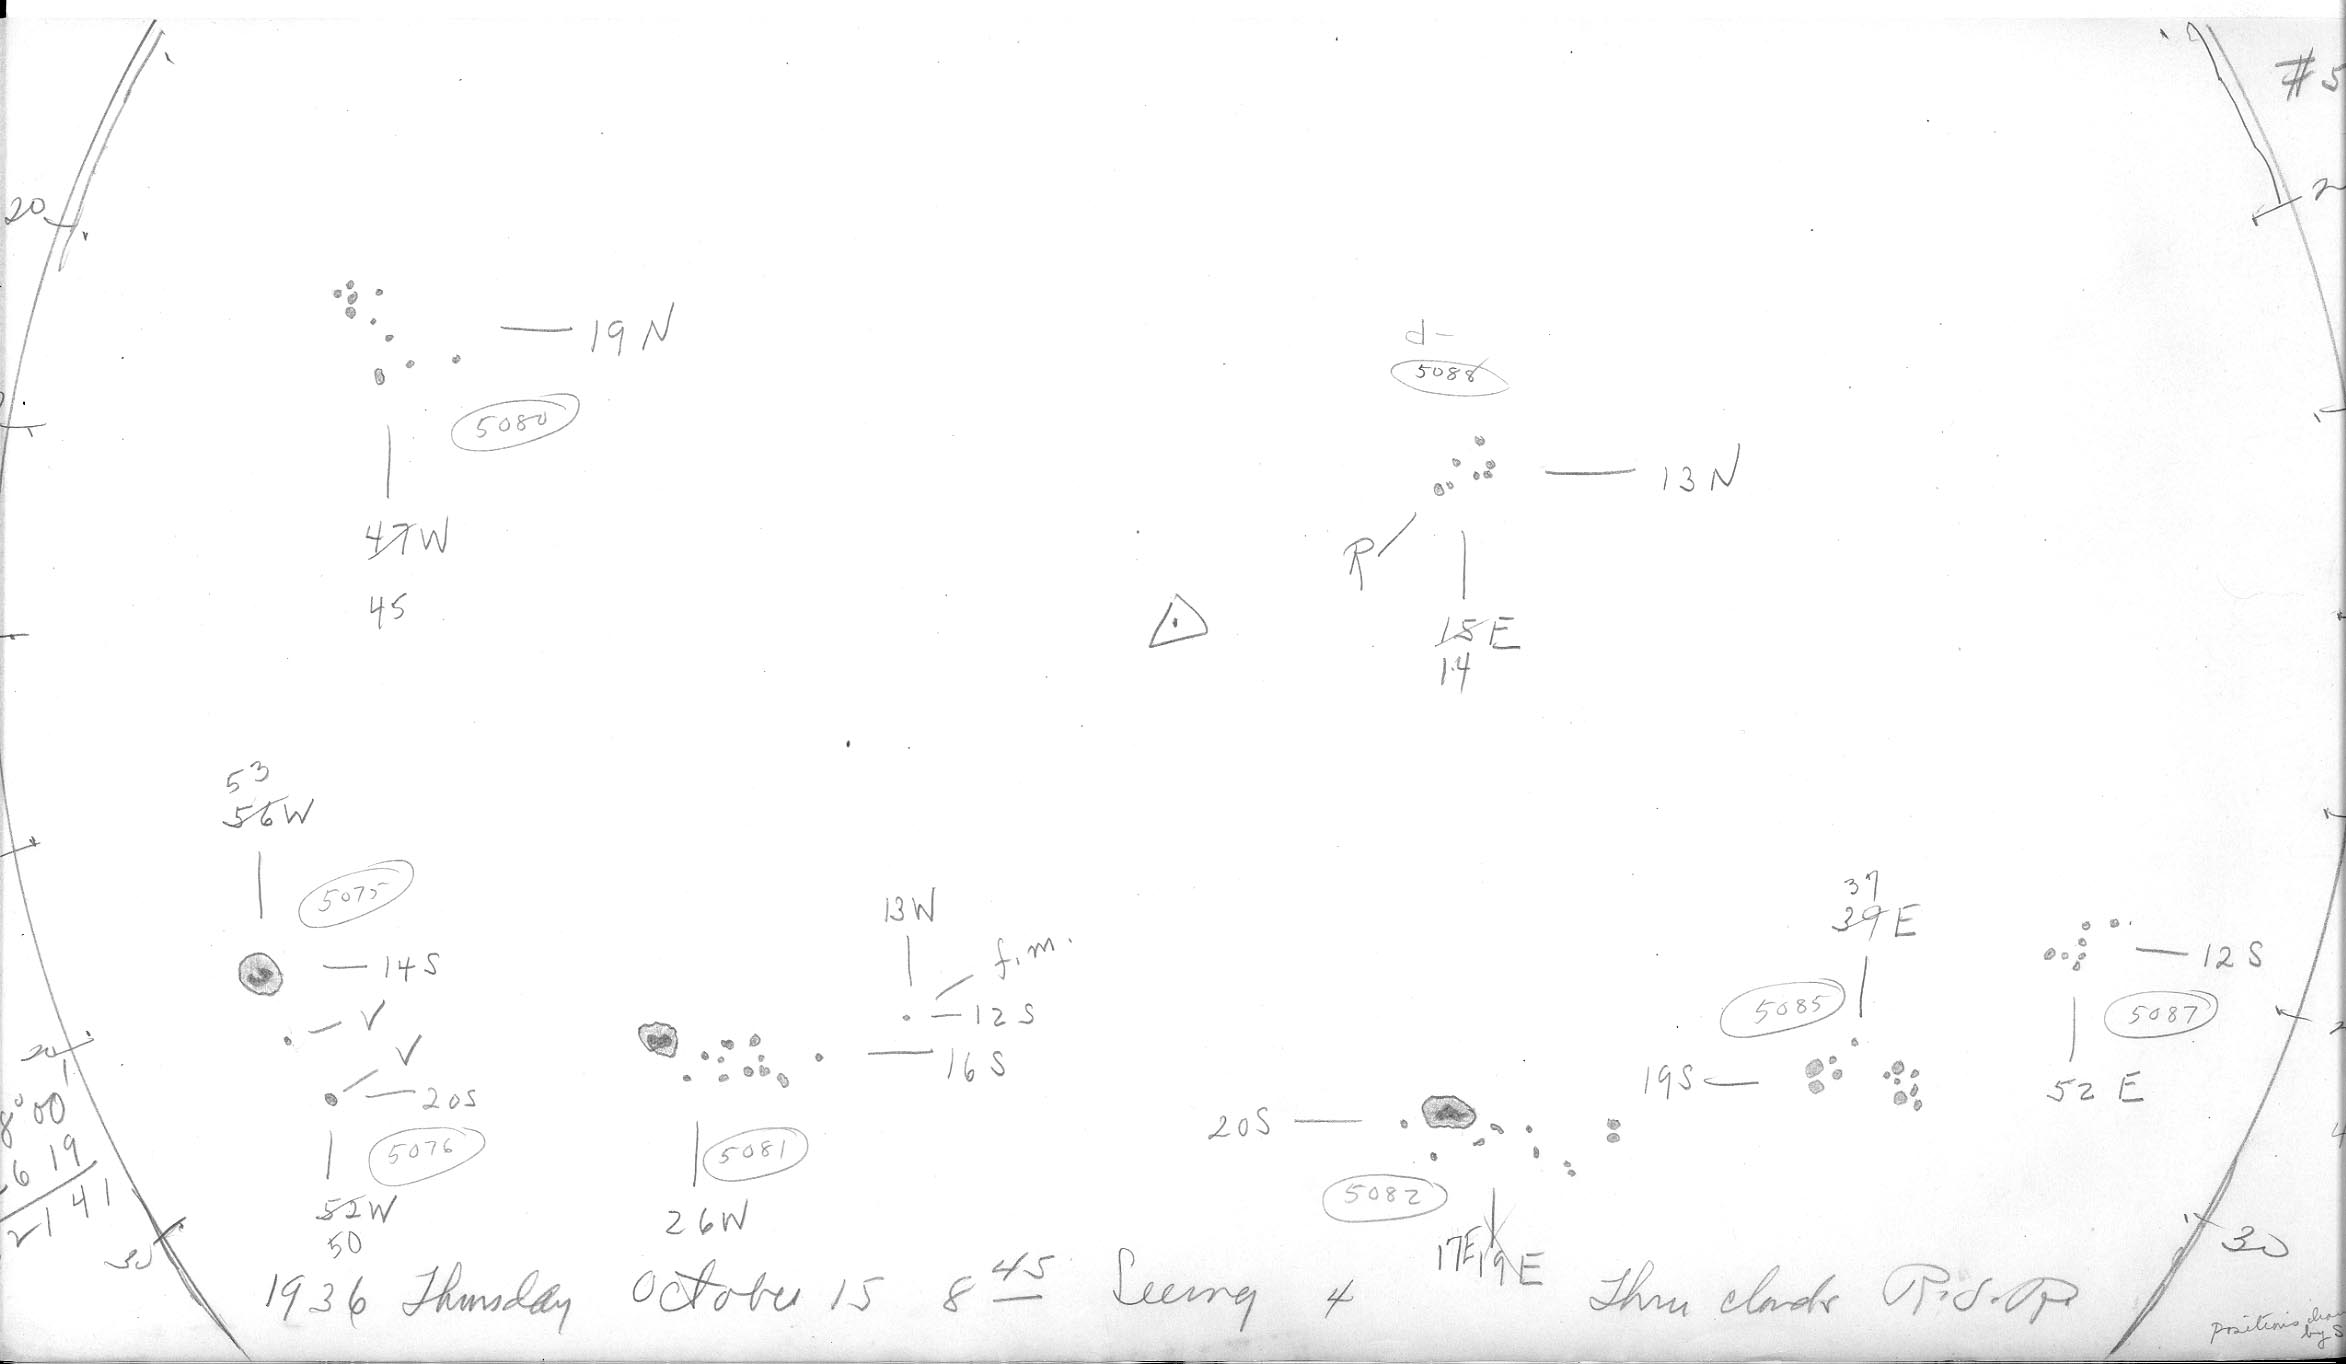 # 5
20
2
19 N
d-
5088
5080
13 N
47W
45
R
15 E
14
53
56W
5075
37
39 E
13W
f.m.
14S
12 S
V
12 S
5085
5087
16 S
V
20S
20S
19S
52 E
20
8° 00
6 19
21 41
5076
5081
5082
4
52W
50
26W
17E 19 E
30
30
1936 Thursday October 15 8 45 Seeing 4 Thru clouds R.S.R.
positions
by S